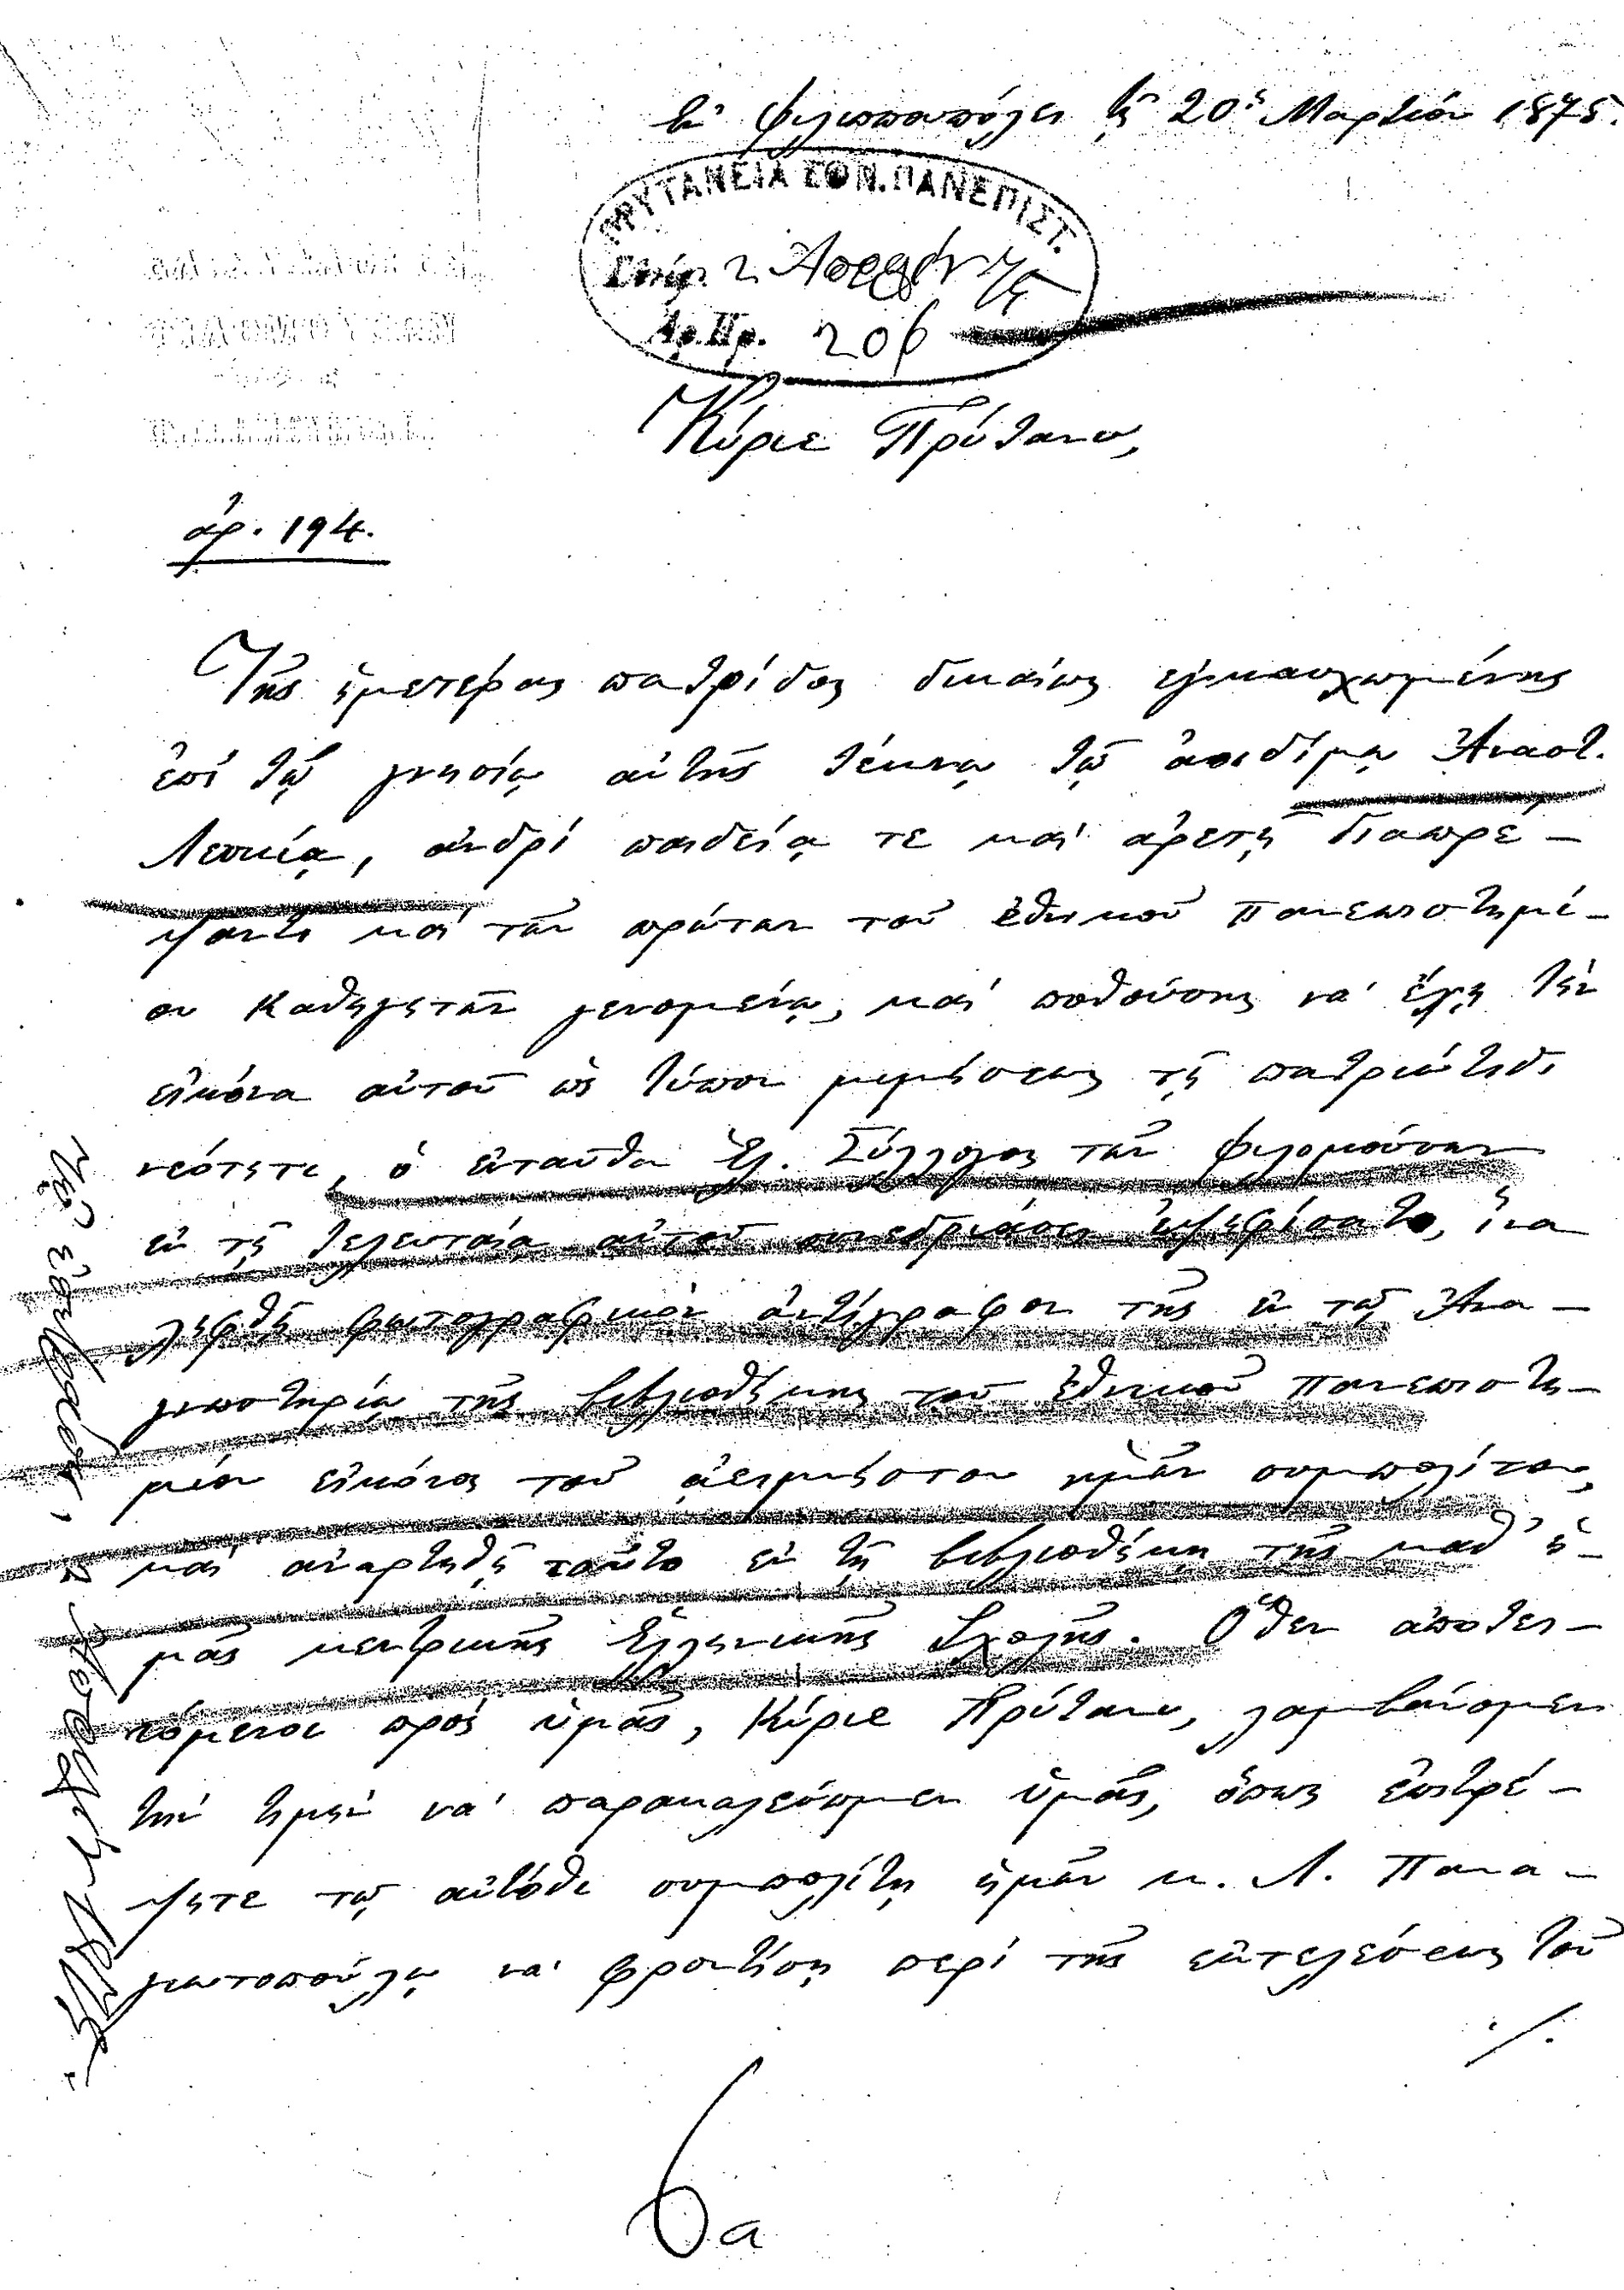 Ἐν Φιλιππουπόλει τῇ 20ῃ Μαρτίου 1875.
ΠΡΥΤΑΝΕΙΑ ΕΘΝ. ΠΑΝΕΠΙΣΤ.
2
Ἀρ. Πρ. 206
Κύριε Πρύτανι,
ἀρ. 194.
Τῆς ἡμετέρας πατρίδος δικαίως ἐγκαυχωμένης
ἐπὶ τῷ γνησίῳ αὐτῆς τέκνῳ τῷ ἀοιδίμῳ Ἀναστ.
Λευκίᾳ, ἀνδρὶ παιδείᾳ τε καὶ ἀρετῇ διαπρέ-
ψαντι καὶ τῶν πρώτων τοῦ ἐθνικοῦ Πανεπιστημί-
ου Καθηγητῶν γενομένῳ, καὶ ποθούσης νὰ ἔχῃ τὴν
εἰκόνα αὐτοῦ ὡς τύπον μιμήσεως τῇ πατριώτιδι
νεότητι, ὁ ἐνταῦθα Ἑλ. Σύλλογος τῶν Φιλομούσων
ἐν τῇ τελευταίᾳ αὐτοῦ συνεδριάσει ἐψηφίσατο, ἵνα
ληφθῇ φωτογραφικὸν ἀντίγραφον τῆς ἐν τῷ Ἀνα-
γνωστηρίῳ τῆς βιβλιοθήκης τοῦ ἐθνικοῦ Πανεπιστη-
μίου εἰκόνος τοῦ ἀειμνήστου ἡμῶν συμπολίτου,
καὶ ἀναρτηθῇ τοῦτο ἐν τῇ βιβλιοθήκῃ τῆς καθ' ἡ-
μᾶς κεντρικῆς Ἑλληνικῆς Σχολῆς. Ὅθεν ἀποτει-
νόμενοι πρὸς ὑμᾶς, Κύριε Πρύτανι, λαμβάνομεν
τὴν τιμὴν νὰ παρακαλέσωμεν ὑμᾶς, ὅπως ἐπιτρέ-
ψητε τῷ αὐτόθι συμπολίτῃ ἡμῶν κ. Λ. Πανα-
γιωτοπούλῳ νὰ φροντίσῃ περὶ τῆς ἐκτελέσεως τοῦ
./.
6α